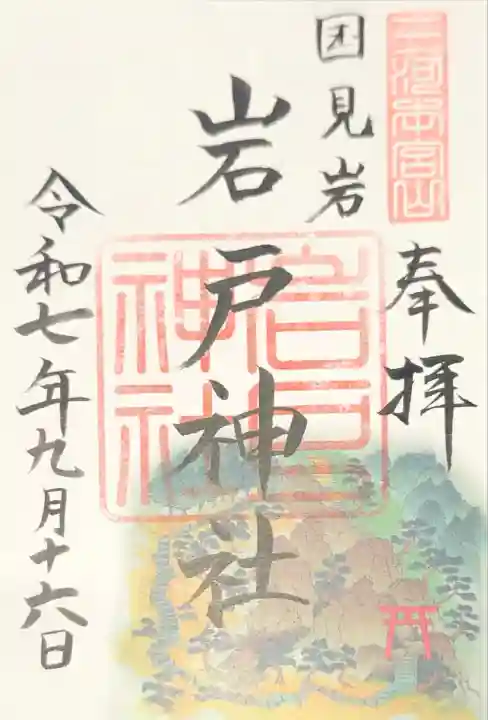 三河本宮山
奉拝
国見岩
岩戸神社
岩戸
神社
令和七年九月十六日